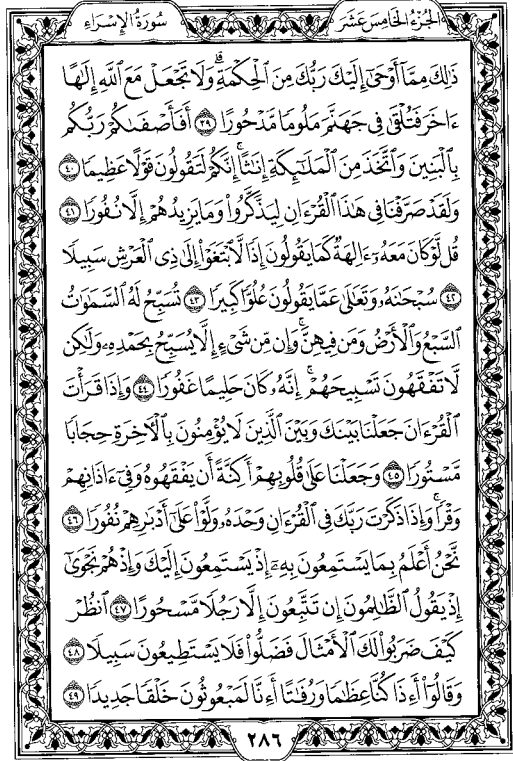 سُورَةُ الإِسْرَاءِ
الجُزْءُ الخَامِسَ عَشَرَ
ذَٰلِكَ مِمَّآ أَوْحَىٰٓ إِلَيْكَ رَبُّكَ مِنَ ٱلْحِكْمَةِۗ وَلَا تَجْعَلْ مَعَ ٱللَّهِ إِلَٰهًا
ءَاخَرَ فَتُلْقَىٰ فِى جَهَنَّمَ مَلُومًا مَّدْحُورًا ٣٩ أَفَأَصْفَىٰكُمْ رَبُّكُم
بِٱلْبَنِينَ وَٱتَّخَذَ مِنَ ٱلْمَلَٰٓئِكَةِ إِنَٰثًاۚ إِنَّكُمْ لَتَقُولُونَ قَوْلًا عَظِيمًا ٤٠
وَلَقَدْ صَرَّفْنَا فِى هَٰذَا ٱلْقُرْءَانِ لِيَذَّكَّرُوا۟ وَمَا يَزِيدُهُمْ إِلَّا نُفُورًا ٤١
قُل لَّوْ كَانَ مَعَهُۥٓ ءَالِهَةٌ كَمَا يَقُولُونَ إِذًا لَّٱبْتَغَوْا۟ إِلَىٰ ذِى ٱلْعَرْشِ سَبِيلًا
٤٢ سُبْحَٰنَهُۥ وَتَعَٰلَىٰ عَمَّا يَقُولُونَ عُلُوًّا كَبِيرًا ٤٣ تُسَبِّحُ لَهُ ٱلسَّمَٰوَٰتُ
ٱلسَّبْعُ وَٱلْأَرْضُ وَمَن فِيهِنَّۚ وَإِن مِّن شَىْءٍ إِلَّا يُسَبِّحُ بِحَمْدِهِۦ وَلَٰكِن
لَّا تَفْقَهُونَ تَسْبِيحَهُمْۗ إِنَّهُۥ كَانَ حَلِيمًا غَفُورًا ٤٤ وَإِذَا قَرَأْتَ
ٱلْقُرْءَانَ جَعَلْنَا بَيْنَكَ وَبَيْنَ ٱلَّذِينَ لَا يُؤْمِنُونَ بِٱلْءَاخِرَةِ حِجَابًا
مَّسْتُورًا ٤٥ وَجَعَلْنَا عَلَىٰ قُلُوبِهِمْ أَكِنَّةً أَن يَفْقَهُوهُ وَفِىٓ ءَاذَانِهِمْ
وَقْرًاۚ وَإِذَا ذَكَرْتَ رَبَّكَ فِى ٱلْقُرْءَانِ وَحْدَهُۥ وَلَّوْا۟ عَلَىٰٓ أَدْبَٰرِهِمْ نُفُورًا ٤٦
نَّحْنُ أَعْلَمُ بِمَا يَسْتَمِعُونَ بِهِۦٓ إِذْ يَسْتَمِعُونَ إِلَيْكَ وَإِذْ هُمْ نَجْوَىٰٓ
إِذْ يَقُولُ ٱلظَّٰلِمُونَ إِن تَتَّبِعُونَ إِلَّا رَجُلًا مَّسْحُورًا ٤٧ ٱنظُرْ
كَيْفَ ضَرَبُوا۟ لَكَ ٱلْأَمْثَالَ فَضَلُّوا۟ فَلَا يَسْتَطِيعُونَ سَبِيلًا ٤٨
وَقَالُوٓا۟ أَءِذَا كُنَّا عِظَٰمًا وَرُفَٰتًا أَءِنَّا لَمَبْعُوثُونَ خَلْقًا جَدِيدًا ٤٩
٢٨٦